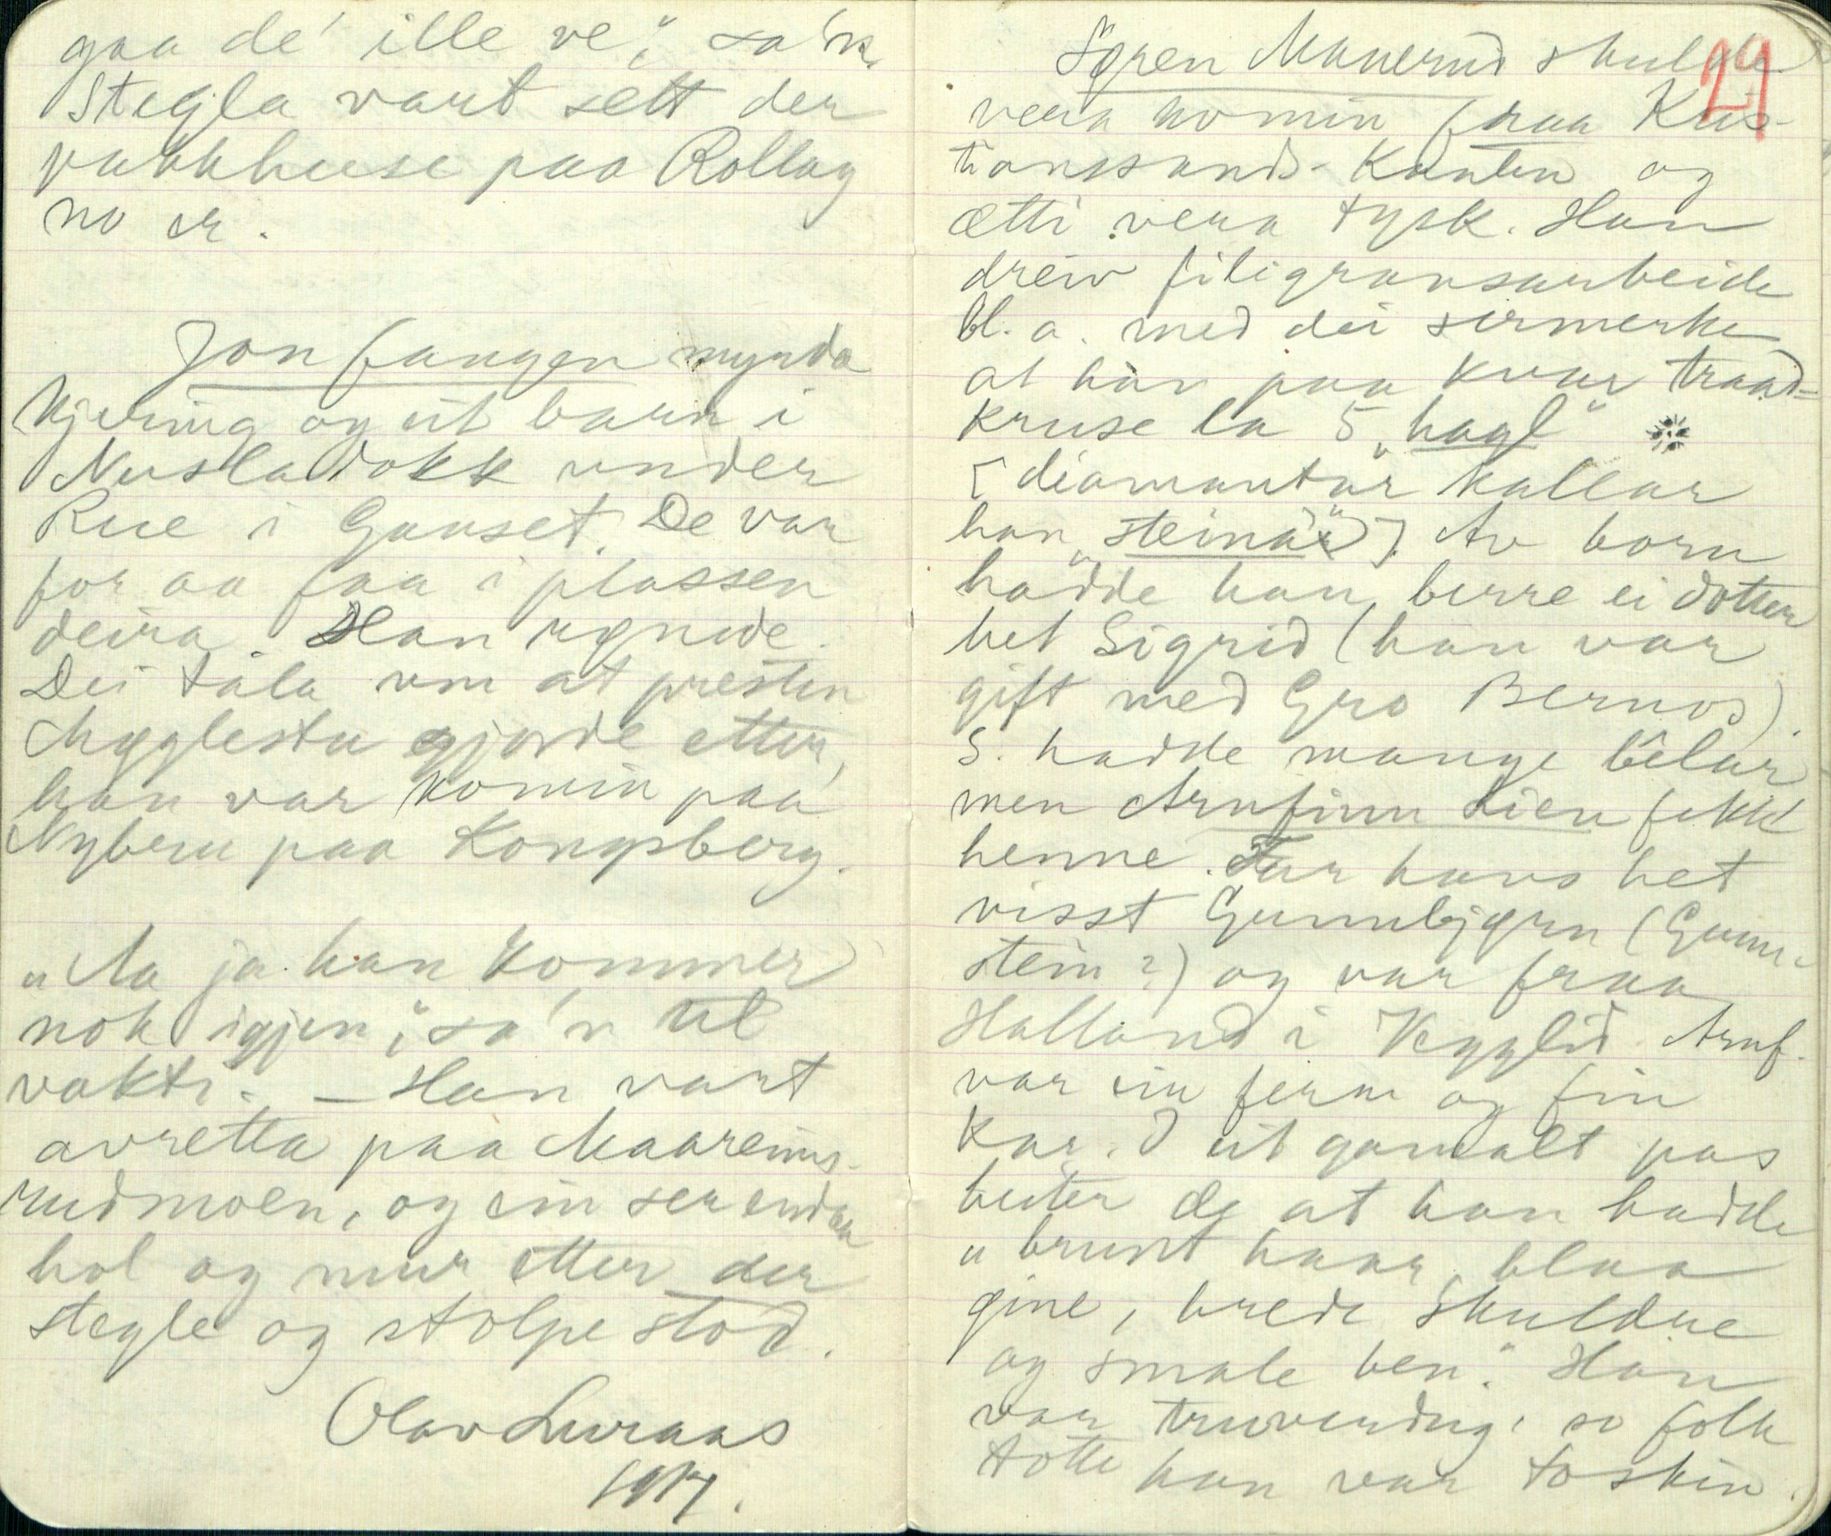 gaa de' ille ve," sa'n.
Stegla vart sett der
vakkhuse paa Rollag
no er.
Jon fangen myrda
kjering og eit barn i
Nusladokk under
Rue i Gauset. De var
for aa faa i plassen
deira. Han rømde.
Dei tala um at presten
Mygglestu gjorde etter,
han var komin paa
Nybruu paa Kongsberg.
"Aa ja han kommer
nok igjen," sa'n til
vakti. — Han vart
avretta paa Maareins-
rudmoen, og ein ser endaa
hol og mur etter der
stegle og stolpe stod.
Olav Luraas
1917.
29
Søren Manerud skulde
vera komin fraa Kris-
tianssands-Kanten og
ætti vera tysk. Han
dreiv filigransarbeide
bl. a. med dei sermerke
at han paa kvar traad-
kruse la 5 "hagl"
[diamantar kallar
han "steinar"]. Av born
hadde han berre ei dotter
het Sigrid (han var
gift med Gro Bernos).
S. hadde mange belar
men Arnfinn Lien fekk
henne. Far hans het
visst Gunnbjørn (Gunn-
stein?) og var fraa
Halland i Veggli. Arnf.
var ein ferm og fin
kar. I eit gamalt pas
heiter de at han hadde
"brunt haar, blaa
øine, brede skuldre
og smale ben." Han
var truverdug, so folk
totte han var toskin.